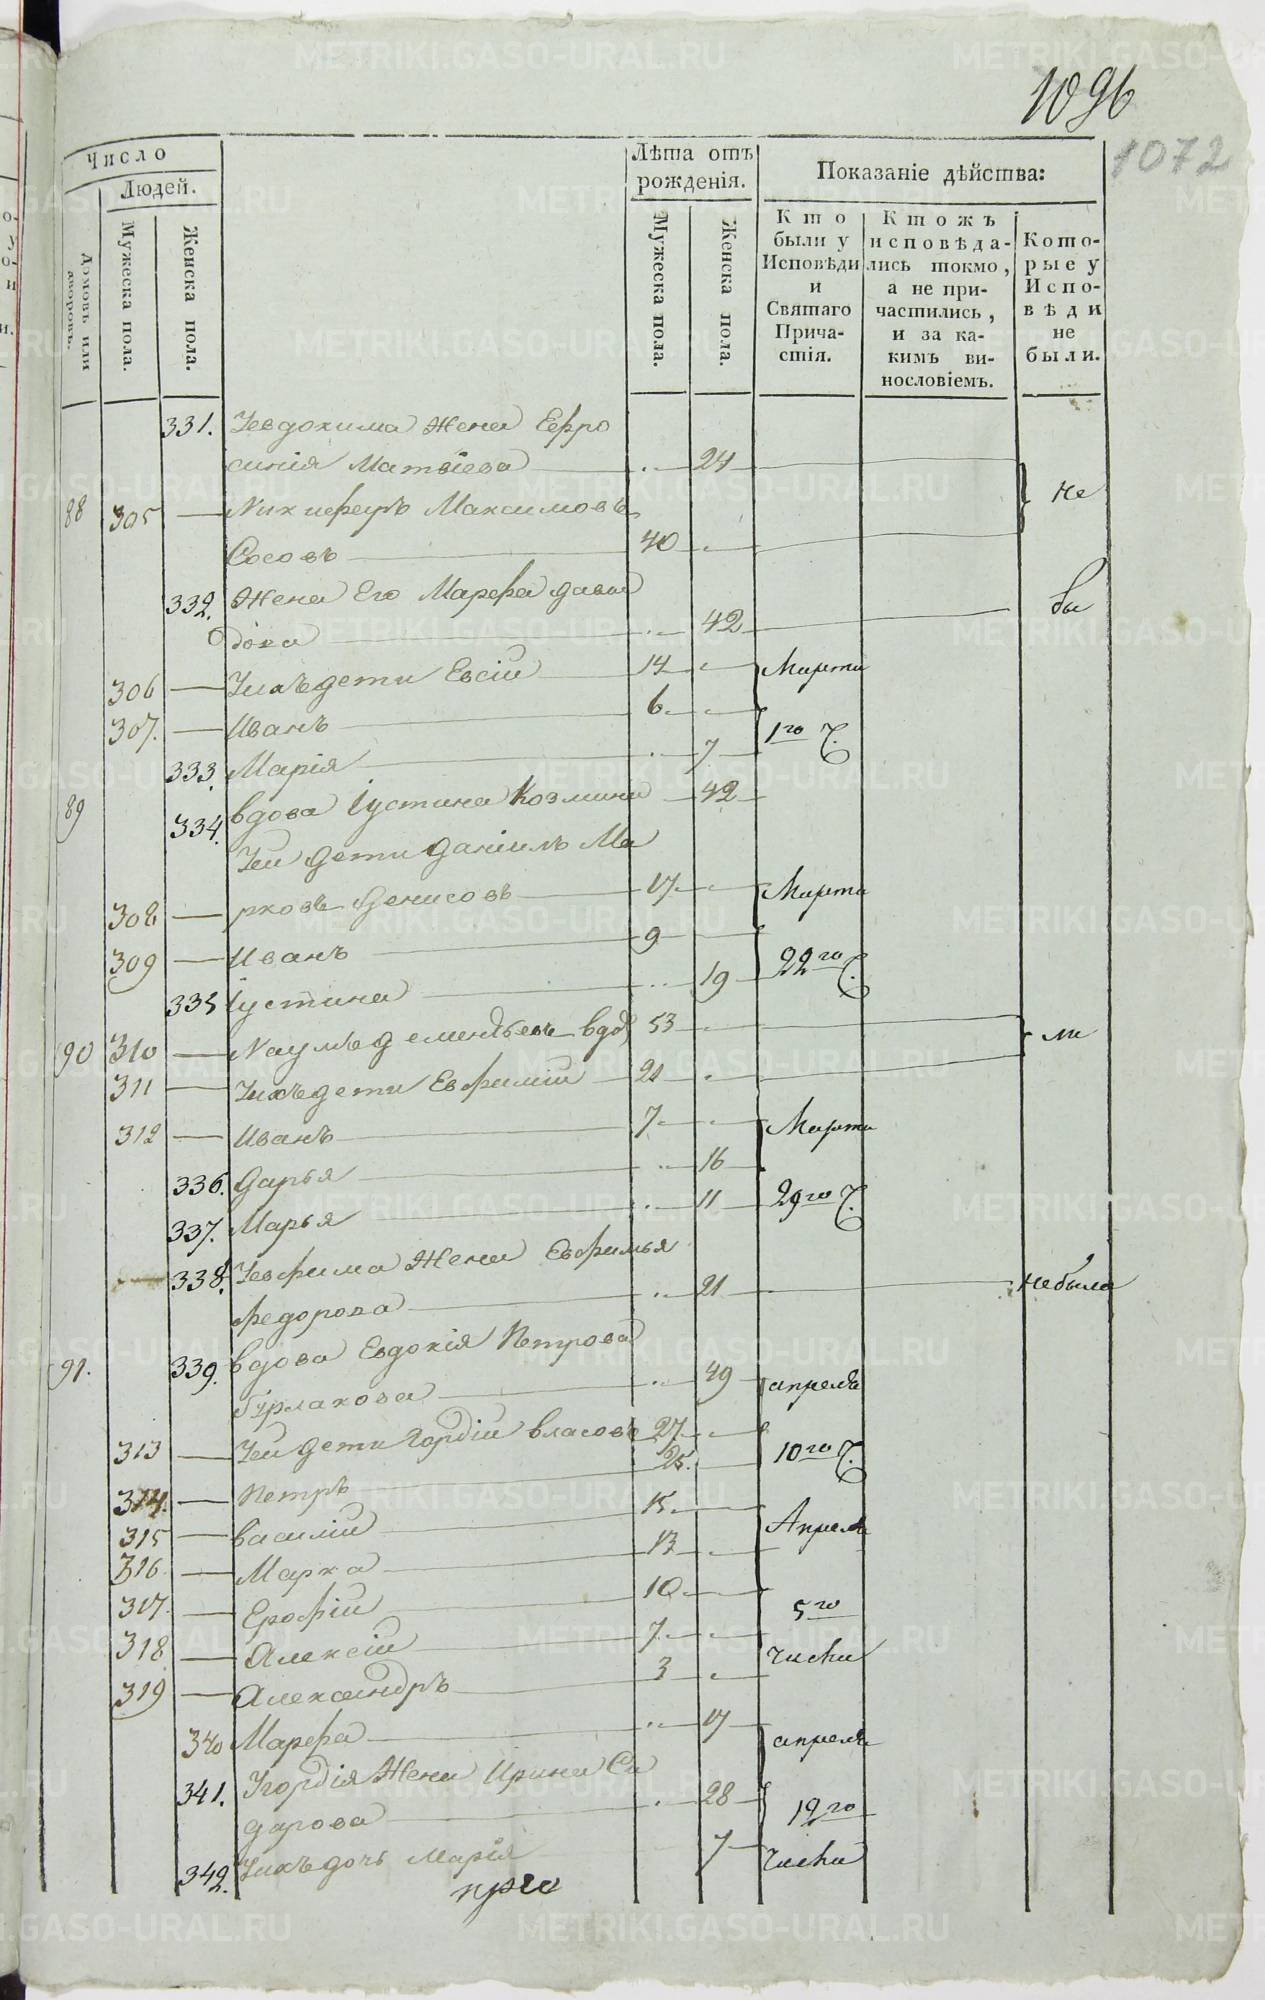 1096
1072
Число
Людей.
Домовъ или дворовъ.
Мужеска пола.
Женска пола.
Лѣта отъ рожденія.
Мужеска пола.
Женска пола.
Показаніе дѣйства:
Кто были у Исповѣди и Святаго Прича-стія.
Ктожъ исповѣда-лись токмо, а не при-частились, и за ка-кимъ ви-нословіемъ.
Кото-рые у Испо-вѣди не были.
331. Уевдокима Жена Ефро
синія Матвіева 24
88 305 Никифоръ Максимовъ не
Сосовъ 40
332. Жена Его Марфа давы бы
дова 42
306 Уихъ дети Евсій 14 Марта
307. Иванъ 6 1го Ч.
333. Марія 7
89 334. вдова Іустина Козмина 42
Уеи дети даніилъ Ма
308 рковъ Денисовъ 17 Марта
309 Иванъ 9 22го Ч.
335 Іустина 19
90 310 Наумъ дементьевъ вдо 53 ли
311 Уихъ дети Евфимій 21
312 Иванъ 7 Марта
336. Дарья 16
337. Марья 11 29го Ч.
338. Уевфима Жена Евфимья
Федорова 21 не была
91. 339. вдова Евдокія Петрова
Бурлакова 49 апреля
313 Уеи дети Гордій власовъ 27 10го Ч.
314. Петръ 25.
315 василій 15 Апреля
316 Марка 13
317 Ерофій 10 5го
318 Алексій 7 числа
319 Александръ 3
340 Марфа 17 апреля
341. Угордія Жена Ирина Си
дарова 28 19го
342. Уихъ дочь Марія 7 числа
METRIKI.GASO-URAL.RU